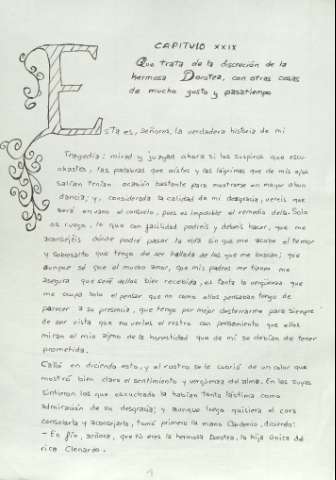 CAPITULO XXIX
Que trata de la discreción de la
hermosa Dorotea, con otras cosas
de mucho gusto y pasatiempo
Esta es, señores, la verdadera historia de mi
Tragedia: mirad y juzgad ahora si los suspiros que escu-
chasteis, las palabras que oísteis y las lágrimas que de mis ojos
salían tenían ocasión bastante para mostrarse en mayor abun
dancia; y, considerada la calidad de mi desgracia, vereis que
será en vano el consuelo, pues es imposible el remedio della. Solo
os ruego, lo que con facilidad podréis y debéis hacer, que me
aconsejéis dónde podré pasar la vida sin que me acabe el temor
y sobresalto que tengo de ser hallada de los que me buscan; que
aunque sé que el mucho amor, que mis padres me tienen me
asegura que seré dellos bien recibida, es tanta la vergüenza que
me ocupa solo el pensar que no como ellos pensaban tengo de
parecer a su presencia, que tengo por mejor desterrarme para siempre
de ser vista que no verles el rostro con pensamiento que ellos
miran el mio ajeno de la honestidad que de mí se debían de tener
prometida.
Calló en diciendo esto, y el rostro se le cubrió de un color que
mostró bien claro el sentimiento y vergüenza del alma. En las suyas
sintieron los que escuchado la habían tanta lástima como
admiración de su desgracia; y aunque luego quisiera el cura
consolarla y aconsejarla, tomó primero la mano Cardenio, diciendo:
- En fin, señora, que tú eres la hermosa Dorotea, la hija única de
rico Clenardo.